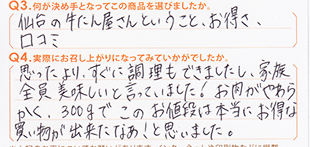 Q3.何が決め手となってこの商品を選びましたか。
仙台の牛たん屋さんということ、お得さ、
口コミ
Q4.実際にお召し上がりになってみていかがでしたか。
思ったより、すぐに調理もできましたし、家族
全員美味しいと言っていました!お肉がやわら
かく、300gでこのお値段は本当にお得な
買い物が出来たなあ!と思いました。